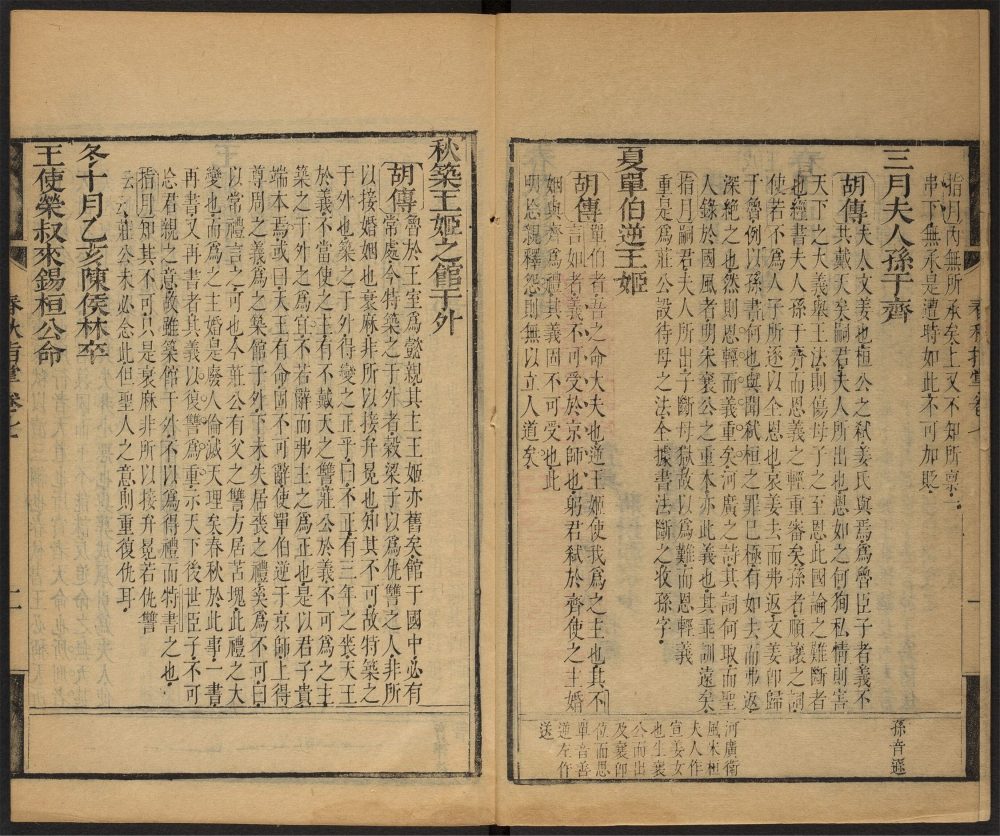 指月內無所承矣上又不知所稟
串下無承是遭時如此不可加貶
三月夫人孫于齊
胡傳夫人文姜也桓公之弒姜氏與焉爲魯臣子者義不
共戴天矣嗣君夫人所出也恩如之何徇私情則害
天下之大義舉王法則傷母子之至恩此國論之難斷者
也經書夫人孫于齊而恩義之輕重審矣孫者順讓之詞
使若不爲人子所逐以全恩也哀姜去而弗返文姜卽歸
于魯例以孫書何也與聞弒桓之罪已極有如去而弗返
深絕之也然則恩輕而義重矣河廣之詩其詞何取而聖
人錄於國風者明宋襄公之重本亦此義也其垂訓遠矣
指月嗣君夫人所出子斷母獄故以爲難而恩輕義
重是爲莊公設待母之法全據書法斷之妙孫字
夏單伯逆王姬
胡傳單伯者吾之命大夫也逆王姬使我爲之主也其不
言如者義不可受於京師也躬君弒於齊使之主婚
姻與齊爲禮其義固不可受也此
明忘親釋怨則無以立人道矣
孫音遜
河廣衛
風宋桓
夫人作
宣姜女
也生襄
公而出
及襄卽
位而思
單音善
逆左作
送
秋築王姬之館于外
胡傳魯於王室爲懿親其主王姬亦舊矣館于國中必有
常處今特築之于外者穀梁子以爲仇讐之人非所
以接婚姻也衰麻非所以接弁冕也知其不可故特築之
于外也築之于外得變之正乎曰不正有三年之喪天王
於義不當使之主有不戴天之讐莊公於義不可爲之主
築之于外之爲宜不若辭而弗主之爲正也是以君子貴
端本焉或曰天王有命固不可辭使單伯逆于京師上得
尊周之義爲之築館于外下未失居喪之禮奚爲不可曰
以常禮言之可也今莊公有父之讐方居苫塊此禮之大
變也而爲之主婚是廢人倫滅天理矣春秋於此事一書
再書又再書者其義以復讐爲重示天下後世臣子不可
忘君親之意故雖築館于外不以爲得禮而特書之也
指月知其不可只是衰麻非所以接弁冕若仇讐
云云莊公未必念此但聖人之意則重復仇耳
冬十月乙亥陳侯林卒
王使榮叔來錫桓公命